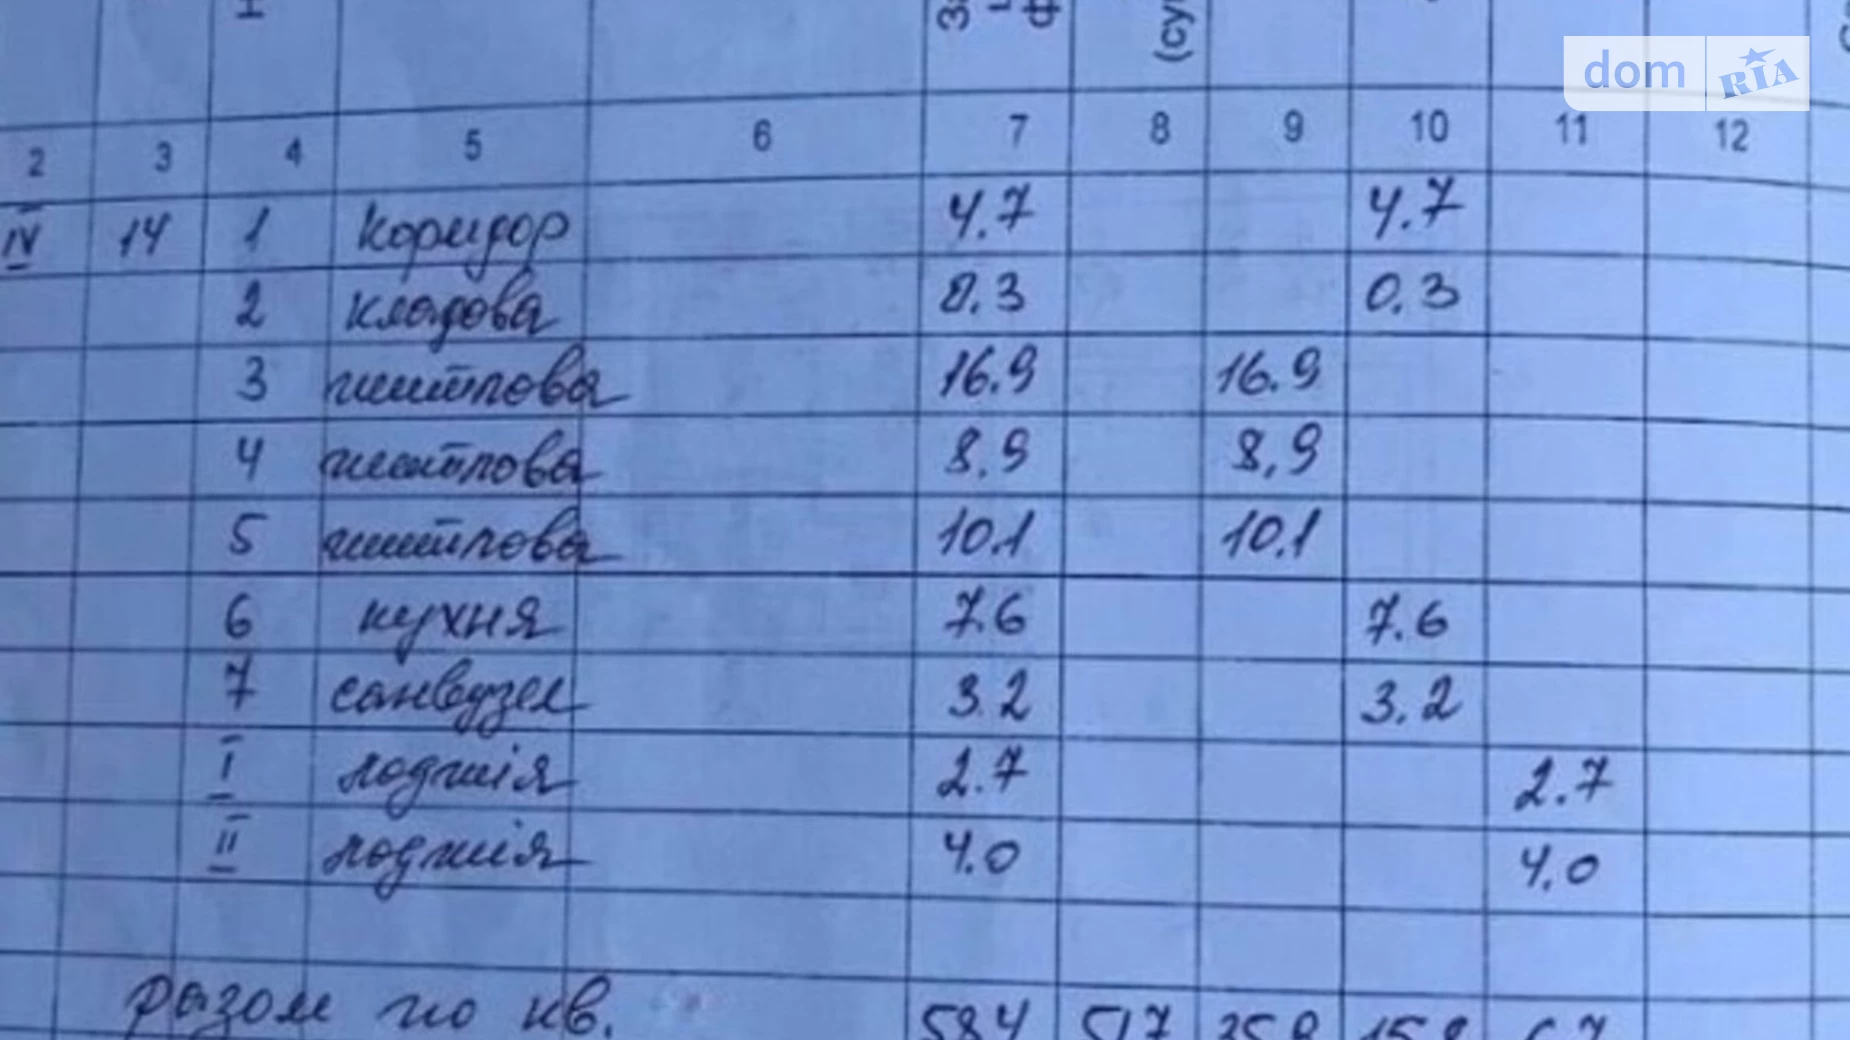 dom RIA
2 3 4 5 6 7 8 9 10 11 12
IV 14 1 коридор 4.7 4.7
2 кладова 0.3 0.3
3 житлова 16.9 16.9
4 житлова 8.9 8,9
5 житлова 10.1 10.1
6 кухня 7.6 7.6
7 санвузел 3.2 3.2
I лоджія 2.7 2.7
II лоджія 4.0 4.0
Разом по кв. 58.4 51.7 35.9 15.8 6.7